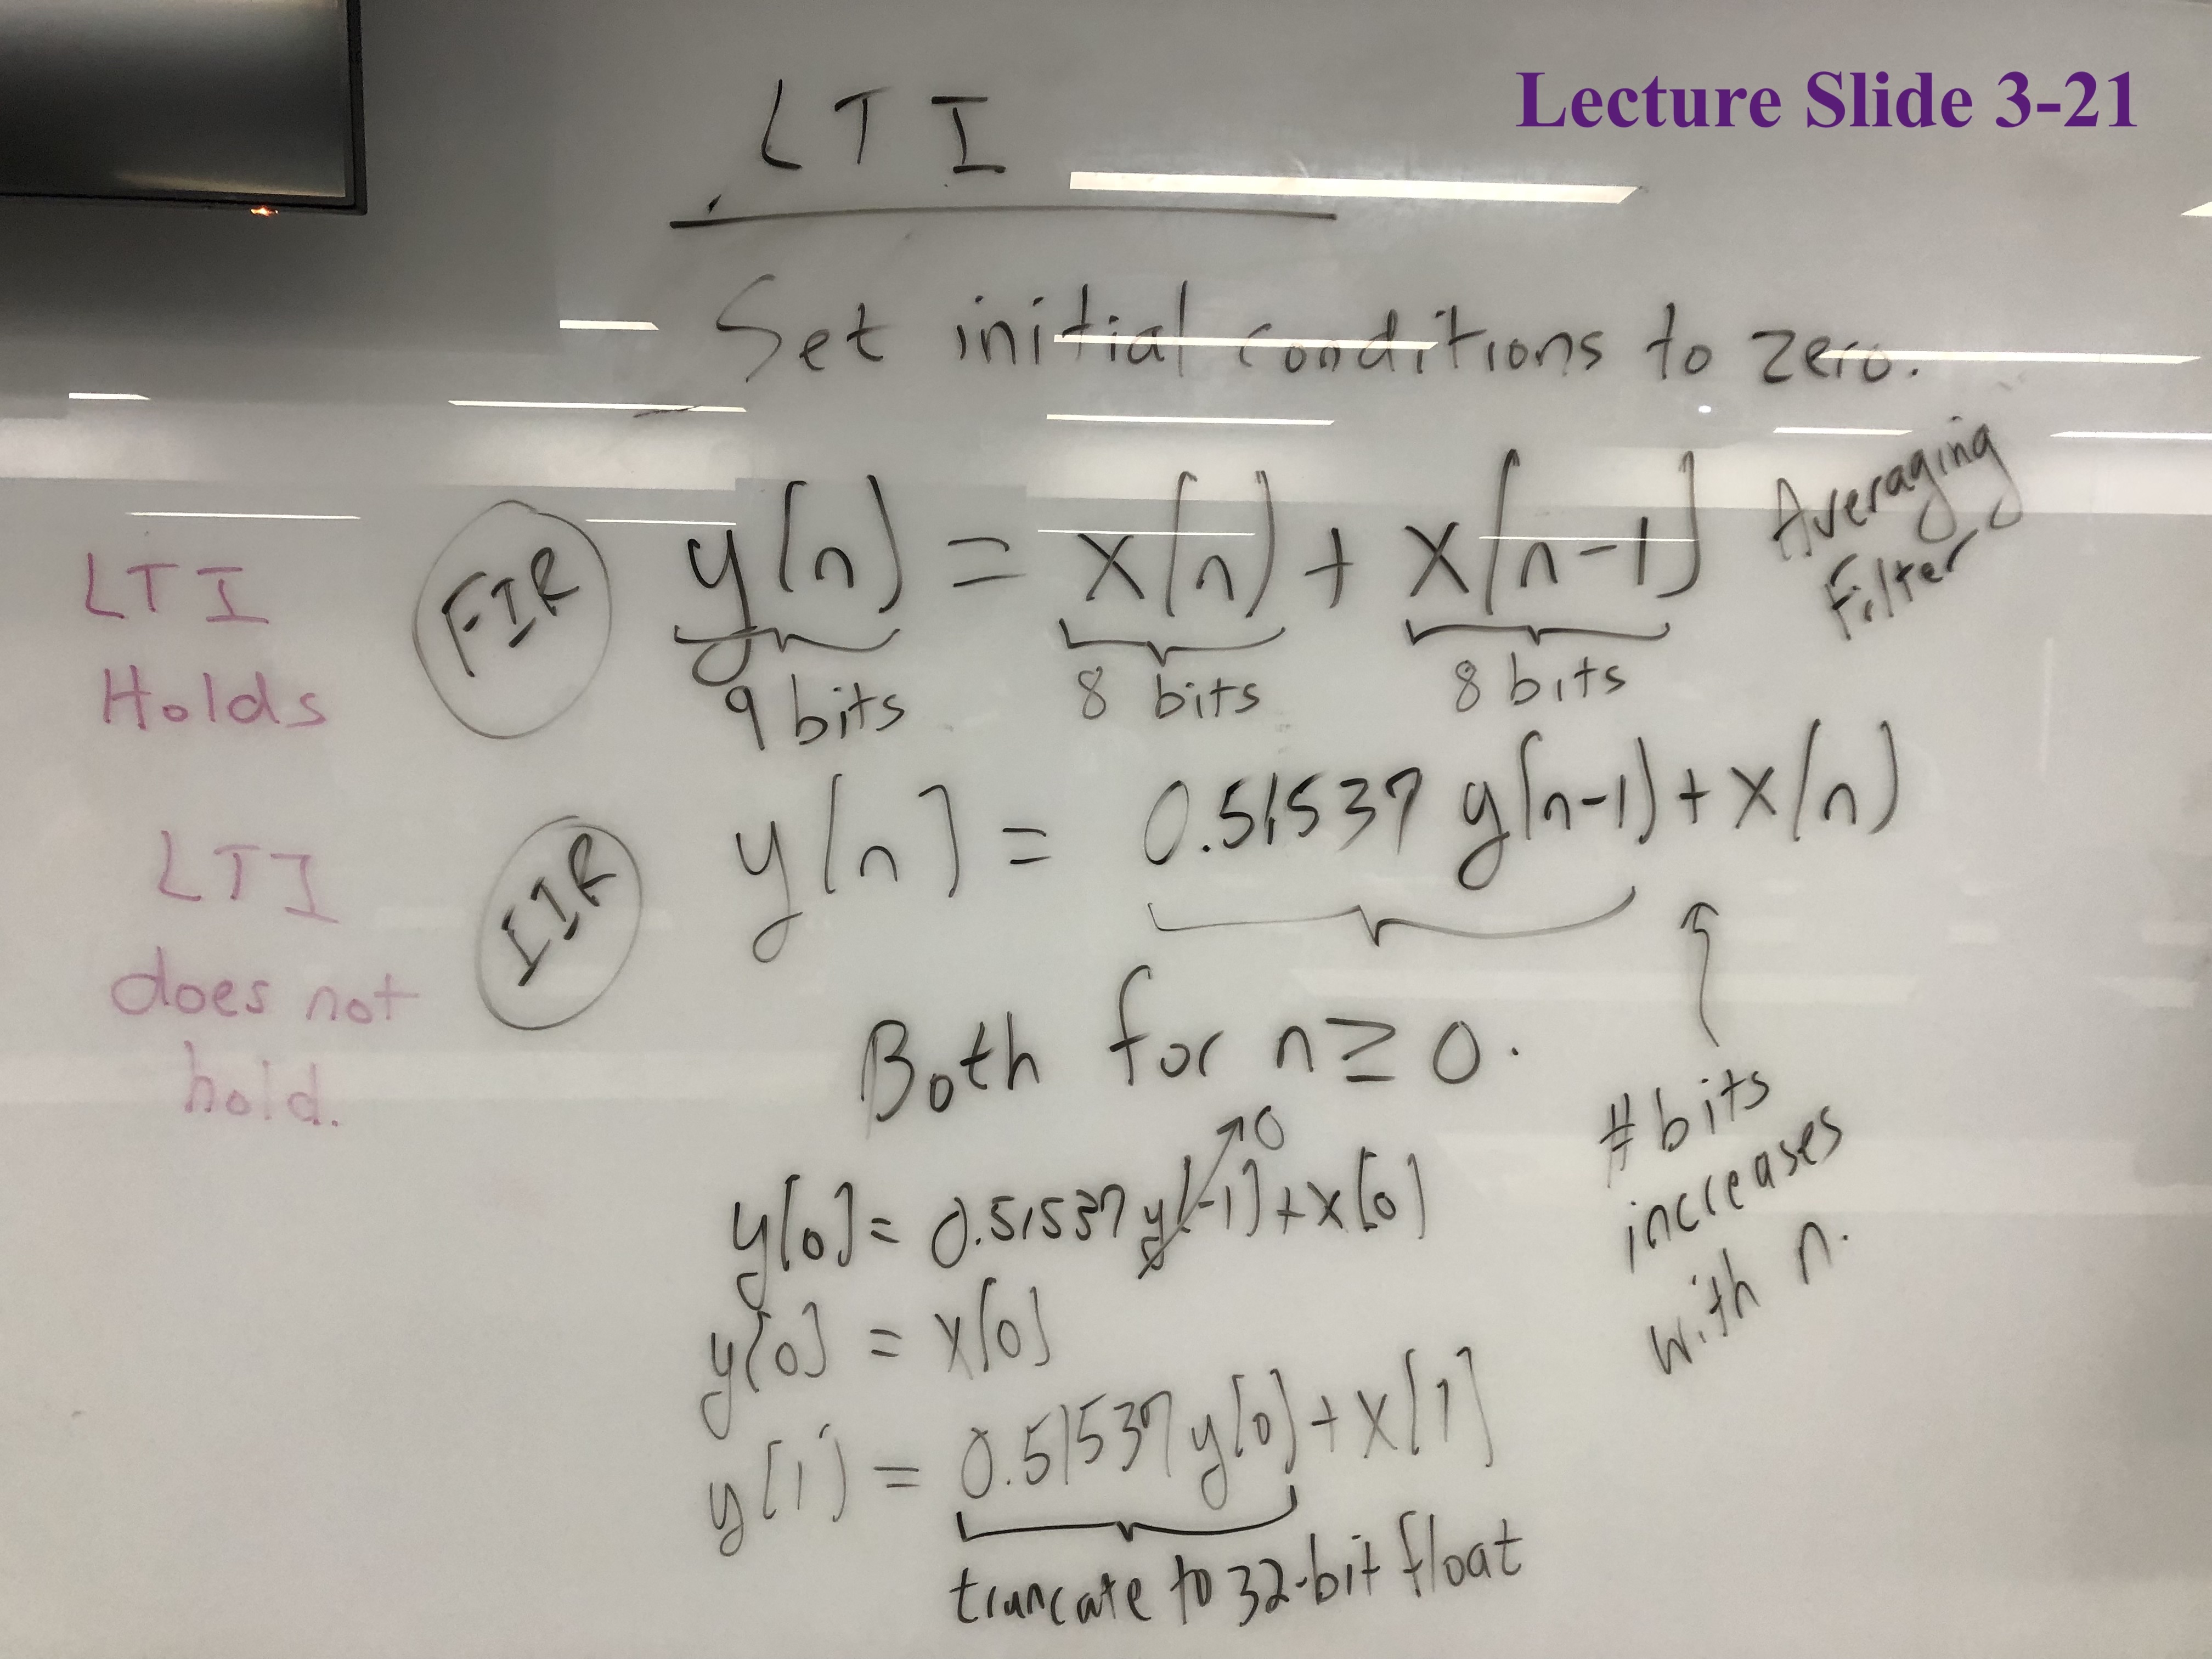 Lecture Slide 3-21
LTI
Set initial conditions to zero.
LTI
Holds
FIR
y[n] = x[n] + x[n-1]
Averaging
Filter
9 bits
8 bits
8 bits
LTI
does not
hold.
IIR
y[n] = 0.51537 y[n-1] + x[n]
# bits
increases
with n.
Both for n ≥ 0.
0
y[0] = 0.51537 y[-1] + x[0]
y[0] = x[0]
y[1] = 0.51537 y[0] + x[1]
truncate to 32-bit float